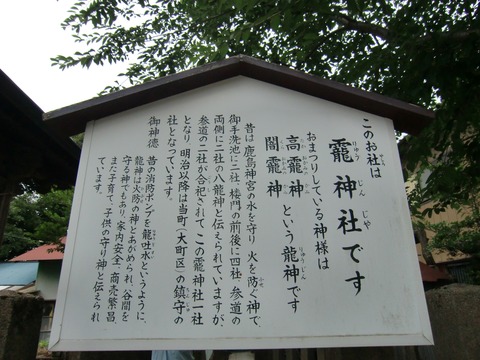 このお社は
龗神社です
りゅう じん じゃ
おまつりしている神様は
高龗神
闇龗神
という龍神です
昔は鹿島神宮の水を守り火を防ぐ神で、
御手洗池に二社、楼門の前後に四社、参道の
両側に二社の八龍神と伝えられていますが、
参道の二社が合祀されて、この龗神社一社
となり、明治以降は当町(大町区)の鎮守の
社となっています。
御神徳
昔の消防ポンプを龍吐水というように、
龍神は火防の神とあがめられ、谷間を
守る神でもあり、家内安全、商売繁昌、
また子育て、子供の守り神と伝えられ
ています。